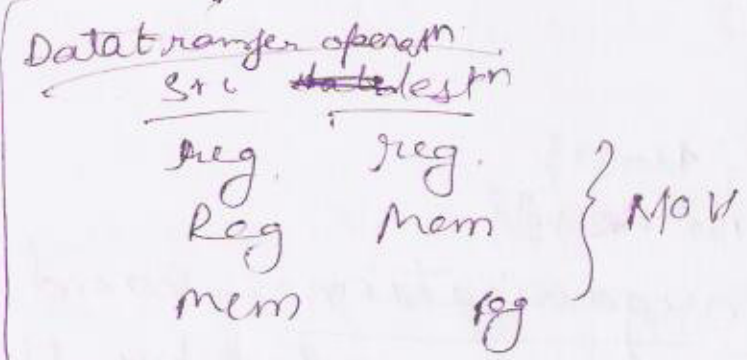 Data transfer operatn
Src destn
reg. reg.
Reg Mem } MOV
mem reg